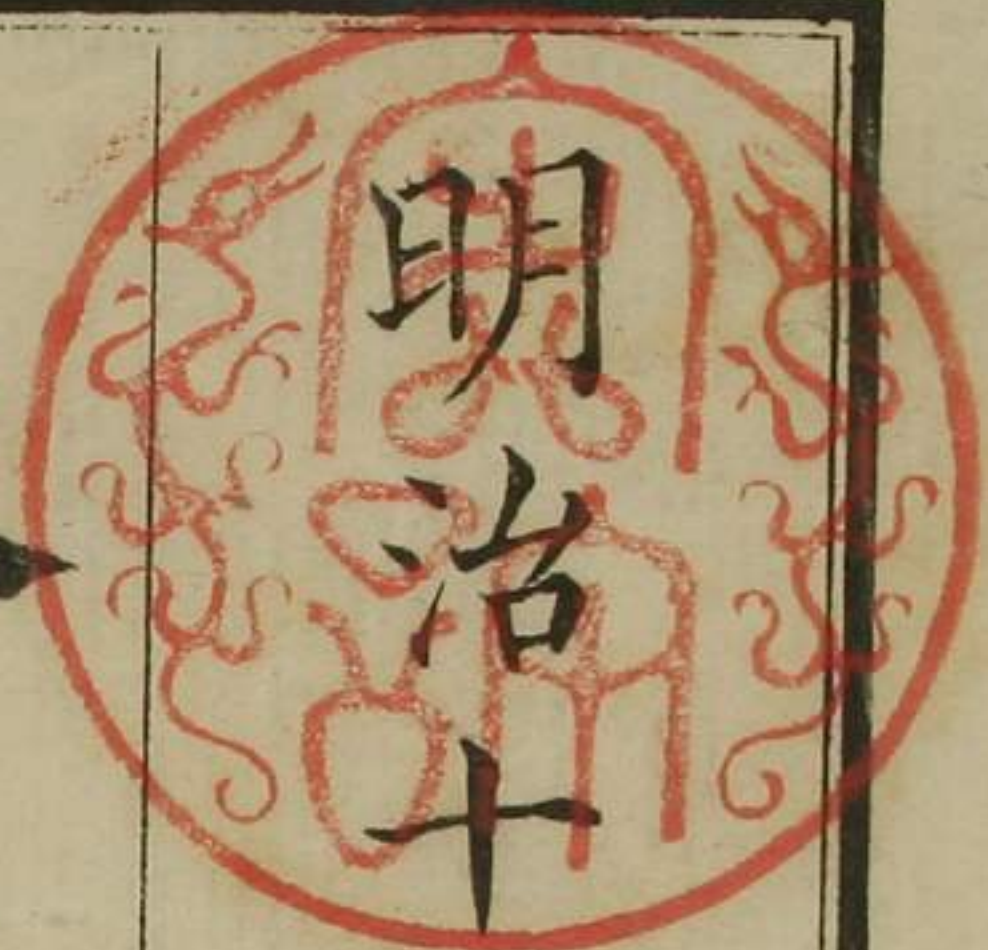 明治十